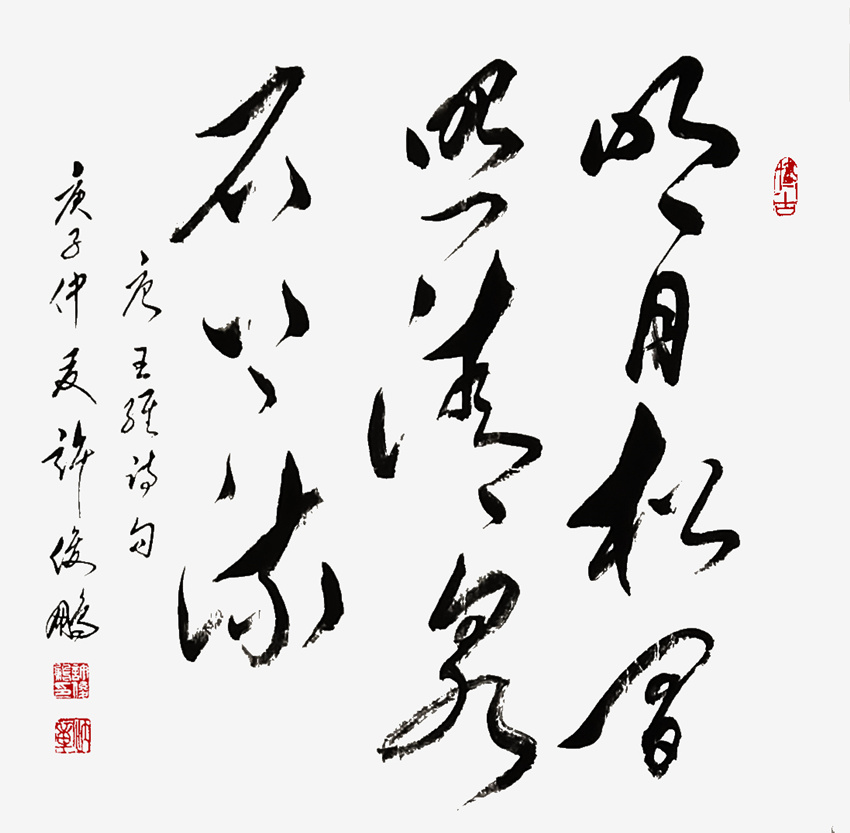 明月松間
照清泉
石上流
唐王維詩句
庚子仲夏許俊鵬